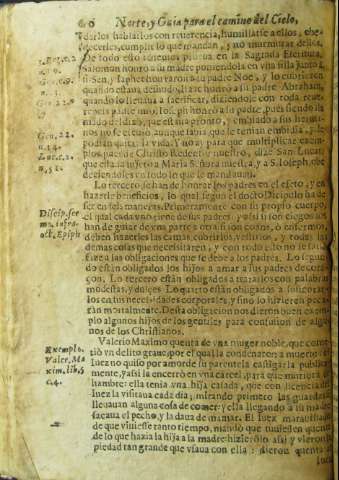 60 Norte, y Guia para el camino del Cielo,
darlos, hablarlos con reuerencia, humillarse a ellos, obe-
decerlos, cumplir lo que mandan, y no murmurar dellos.
De todo esto auemos prueua en la Sagrada Escritura,
Salomon honrò a su madre poniendola en vna silla junto a
si: Sen, y Iaphet honraron a su padre Noe, y lo cubrieron
quando estaua desnudo, Isaac honrò a su padre Abraham,
quando lo lleuaua a sacrificar, diziendole con toda reue-
rencia padre mio, Ioseph honrò a su padre, pues siendo la
mado del día
no se escusò aunque sabia que le tenian embidia, y le
podian quitar la vida. Y no ay para que multiplicar exem
plos, pues de Christo Redentor nuestro, dize San Lucas,
que estaua sujeto a Maria S. señora nuestra, y a S. Ioseph, obe
deciendoles en todo lo que le mandauan.
Lo tercero se han de honrar los padres en el efeto, y en
hazerles beneficios, lo qual segun el docto Dicipulo ha de
ser en tres maneras. Primeramente con su propio cuerpo,
el qual cada vno tiene de sus padres, y assi si son ciegos los
han de guiar de vna parte a otra si son coxos, ò enfermos,
deben hazerles las camas, cubrirlos, vestirlos, y todas las
demas cosas que necessitaren, y con todo esso no se satis-
fize a las obligaciones que se debe a los padres. Lo segun
do están obligados los hijos a amar a sus padres de cora-
çon. Lo tercero están obligados a tratarlos con palabras
modestas, y dulces. Lo quarto están obligados a socorrer-
los en sus necesidades corporales, y sino lo hizieren peca
ràn mortalmente. Desta obligacion nos dieron buen exem-
plo algunos hijos de los gentiles para confusion de algu-
nos de los Christianos.
Valerio Maximo quenta de vna muger noble, que come
tiò vn delito graue, por el qual la condenaron a muerte: el
Iuez no quiso por amor de su parentela castigarla publica
mente, y assi la encerrò en vna carcel para que muriera de
hambre: ella tenia vna hija casada, que con licencia del
Iuez la visitaua cada dia; mirando primero las guardas si
lleuaua alguna cosa de comer: y ella llegando a su madre
sacaua el pecho, y la daua de mamar. El Iuez marauillado
de que viuiesse tanto tiempo, mandò que mirassen quenta
de lo que hazia la hija a la madre: hizieronlo assi, y vieron la
piedad tan grande que vsaua con ella: dieron quenta al
Iuez
3. Reg. c. 2.
Gen. 22.
Gen. 22.
n. 14.
Luc. c. 2.
n. 52.
Discip. ser
mo. infra
oct. Epiph
Exemplo.
Valer. Ma
xim. lib. 5
c. 4.